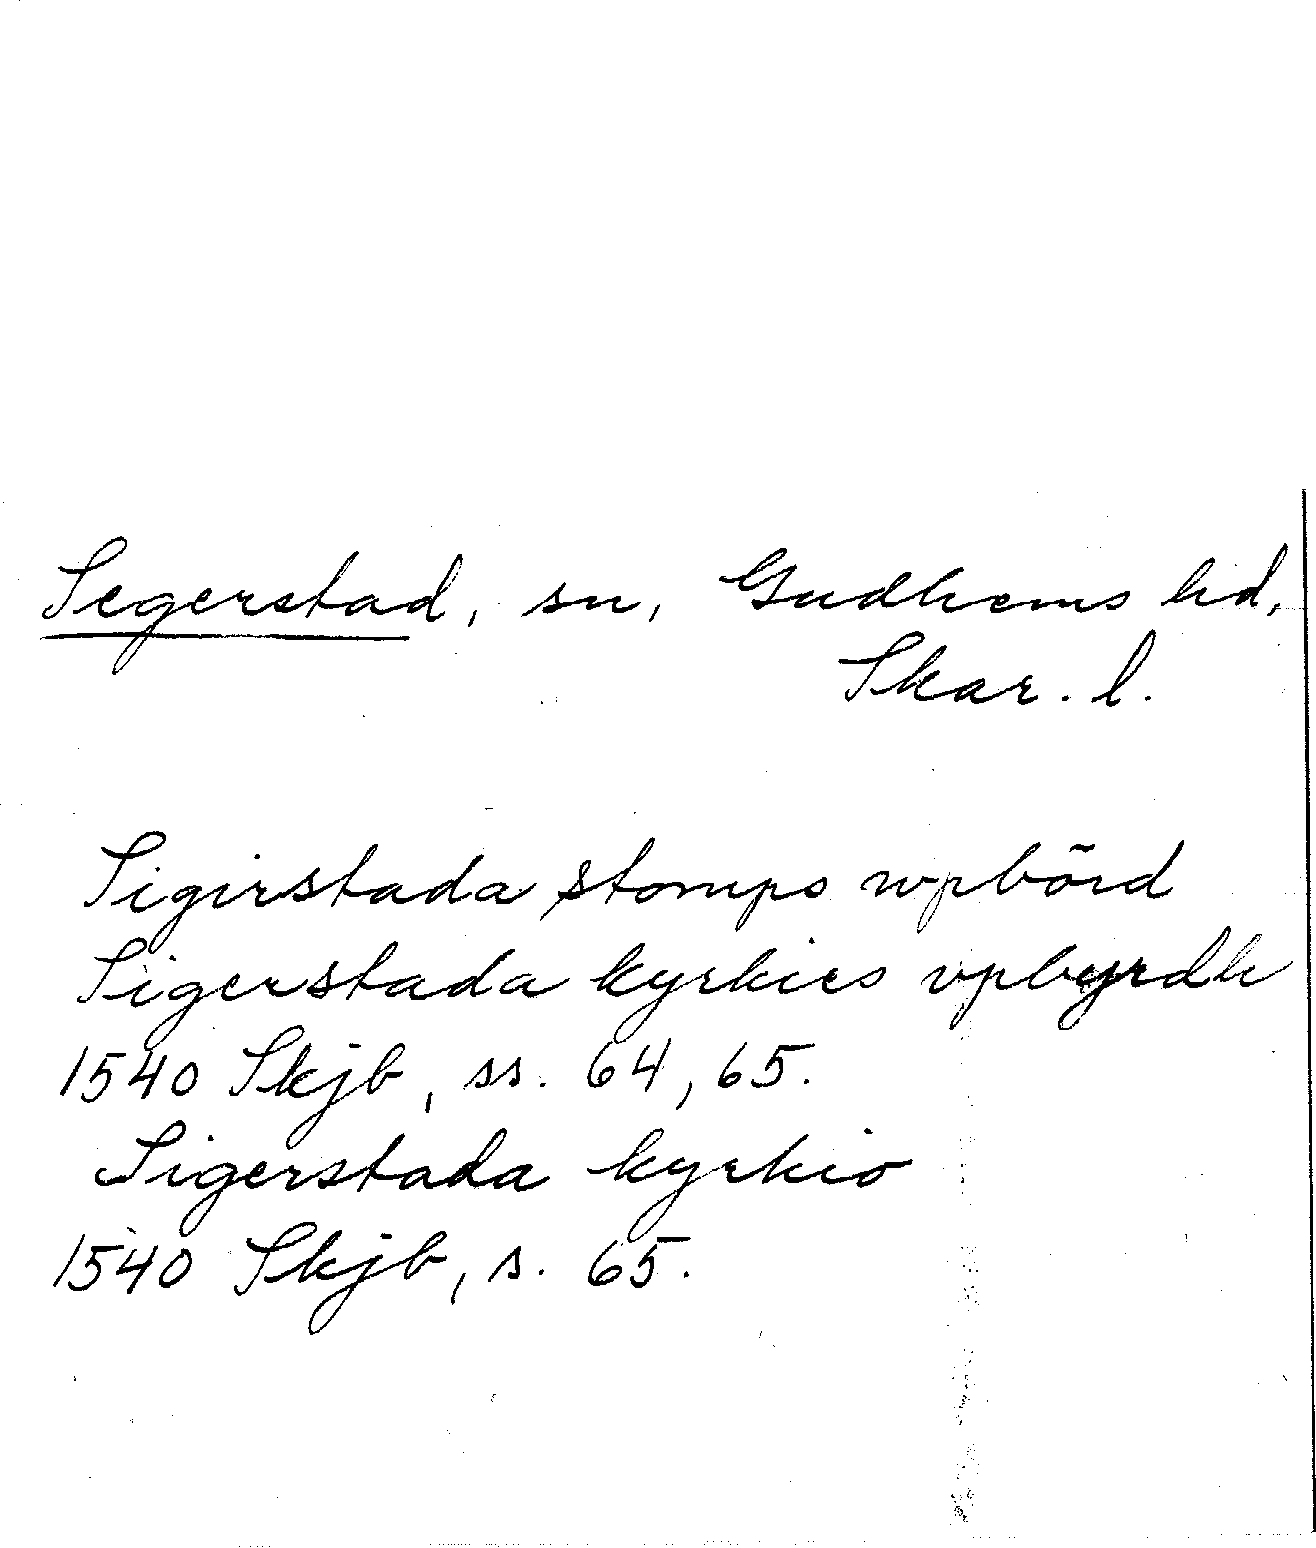 Segerstad, sn, Gudhems hd,
Skar. l.
Sigirstada stomps wpbörd
Sigerstada kyrkies vpbyrdh
1540 Skjb, ss. 64, 65.
Sigerstada kyrkio
1540 Skjb, s. 65.